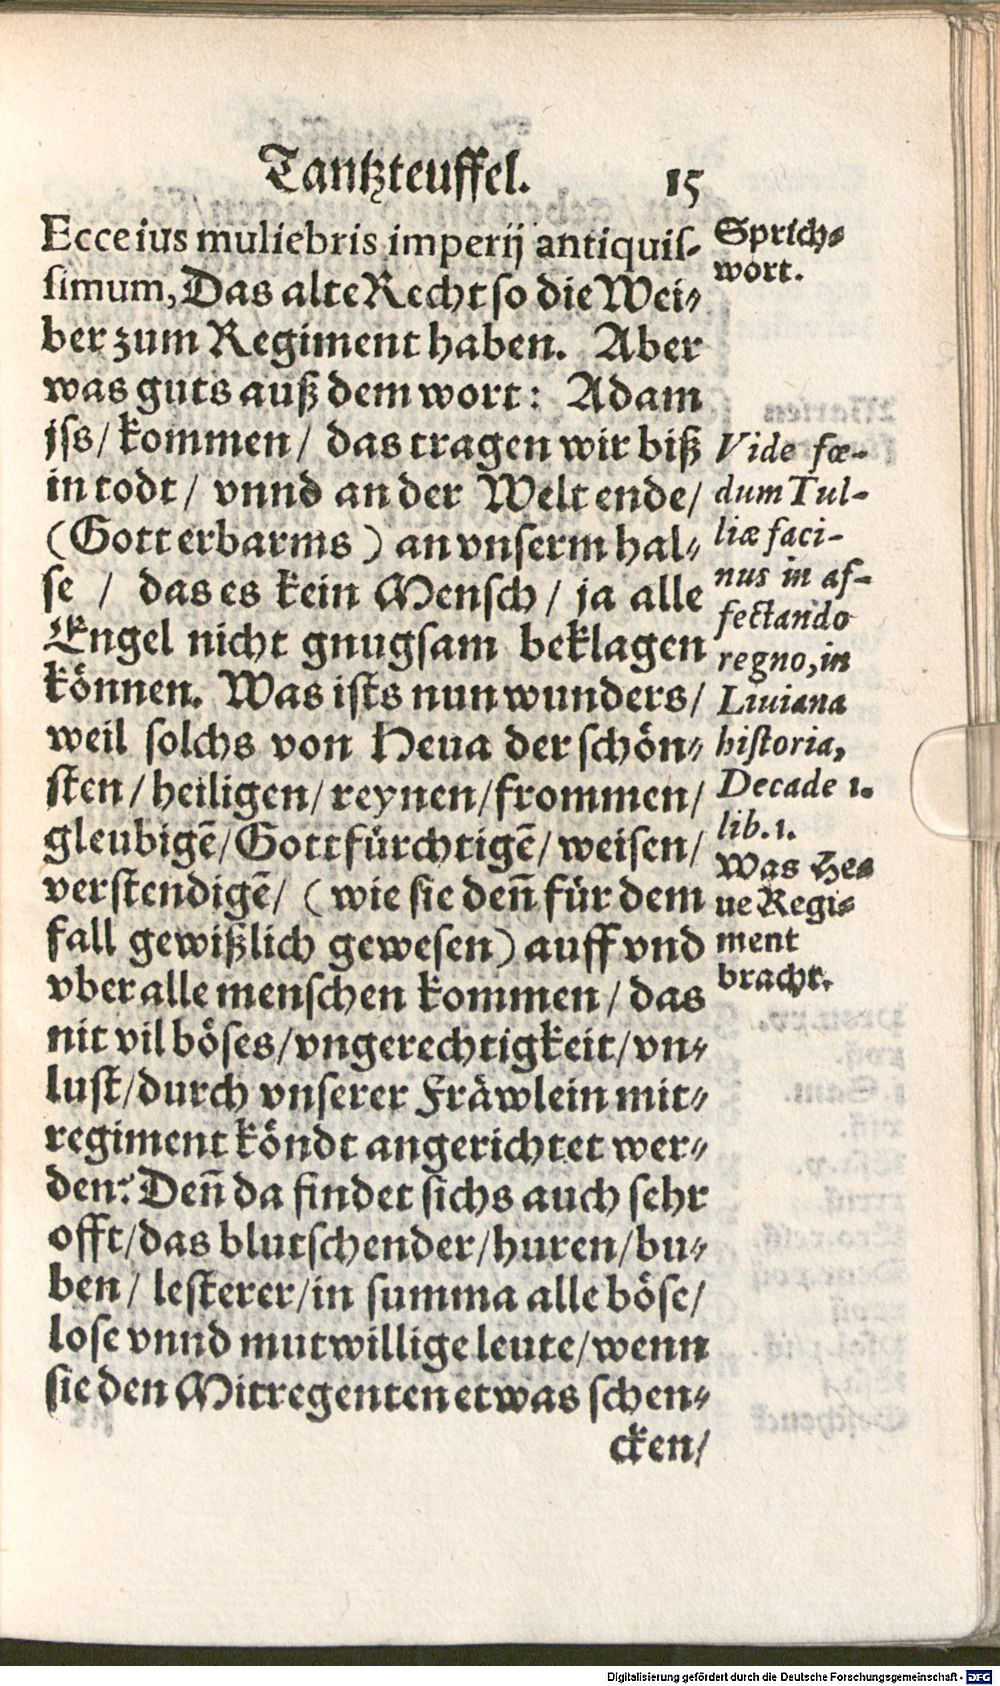 Tantzteuffel. 15
Ecce ius muliebris imperij antiquis-
simum, Das alte Recht so die Wei-
ber zum Regiment haben. Aber
was guts auß dem wort: Adam
jss/ kommen/ das tragen wir biß
in todt/ vnnd an der Welt ende/
(Gott erbarms) an vnserm hal-
se / das es kein Mensch/ ja alle
Engel nicht gnugsam beklagen
können. Was ists nun wunders/
weil solchs von Heua der schön-
sten/ heiligen/ reynen/ frommen/
gleubigē/ Gottfürchtigē/ weisen/
verstendigē/ (wie sie deñ für dem
fall gewißlich gewesen) auff vnd
vber alle menschen kommen/ das
nit vil böses/ vngerechtigkeit/ vn-
lust/ durch vnserer Fräwlein mit-
regiment köndt angerichtet wer-
den? Deñ da findet sichs auch sehr
offt/ das blutschender/ huren/ bu-
ben/ lesterer/ in summa alle böse/
lose vnnd mutwillige leute/ wenn
sie den Mitregenten etwas schen-
cken/
Sprich-
wort.
Vide fœ-
dum Tul-
liæ faci-
nus in af-
fectando
regno, in
Liuiana
historia,
Decade 1.
lib. 1.
Was He-
ue Regi-
ment
bracht.
Digitalisierung gefördert durch die Deutsche Forschungsgemeinschaft - DFG